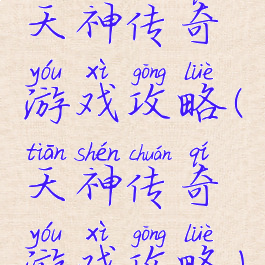 天神传奇
yóu xì gōng lüè
游戏攻略(
tiān shén chuán qí
天神传奇
yóu xì gōng lüè
游戏攻略)